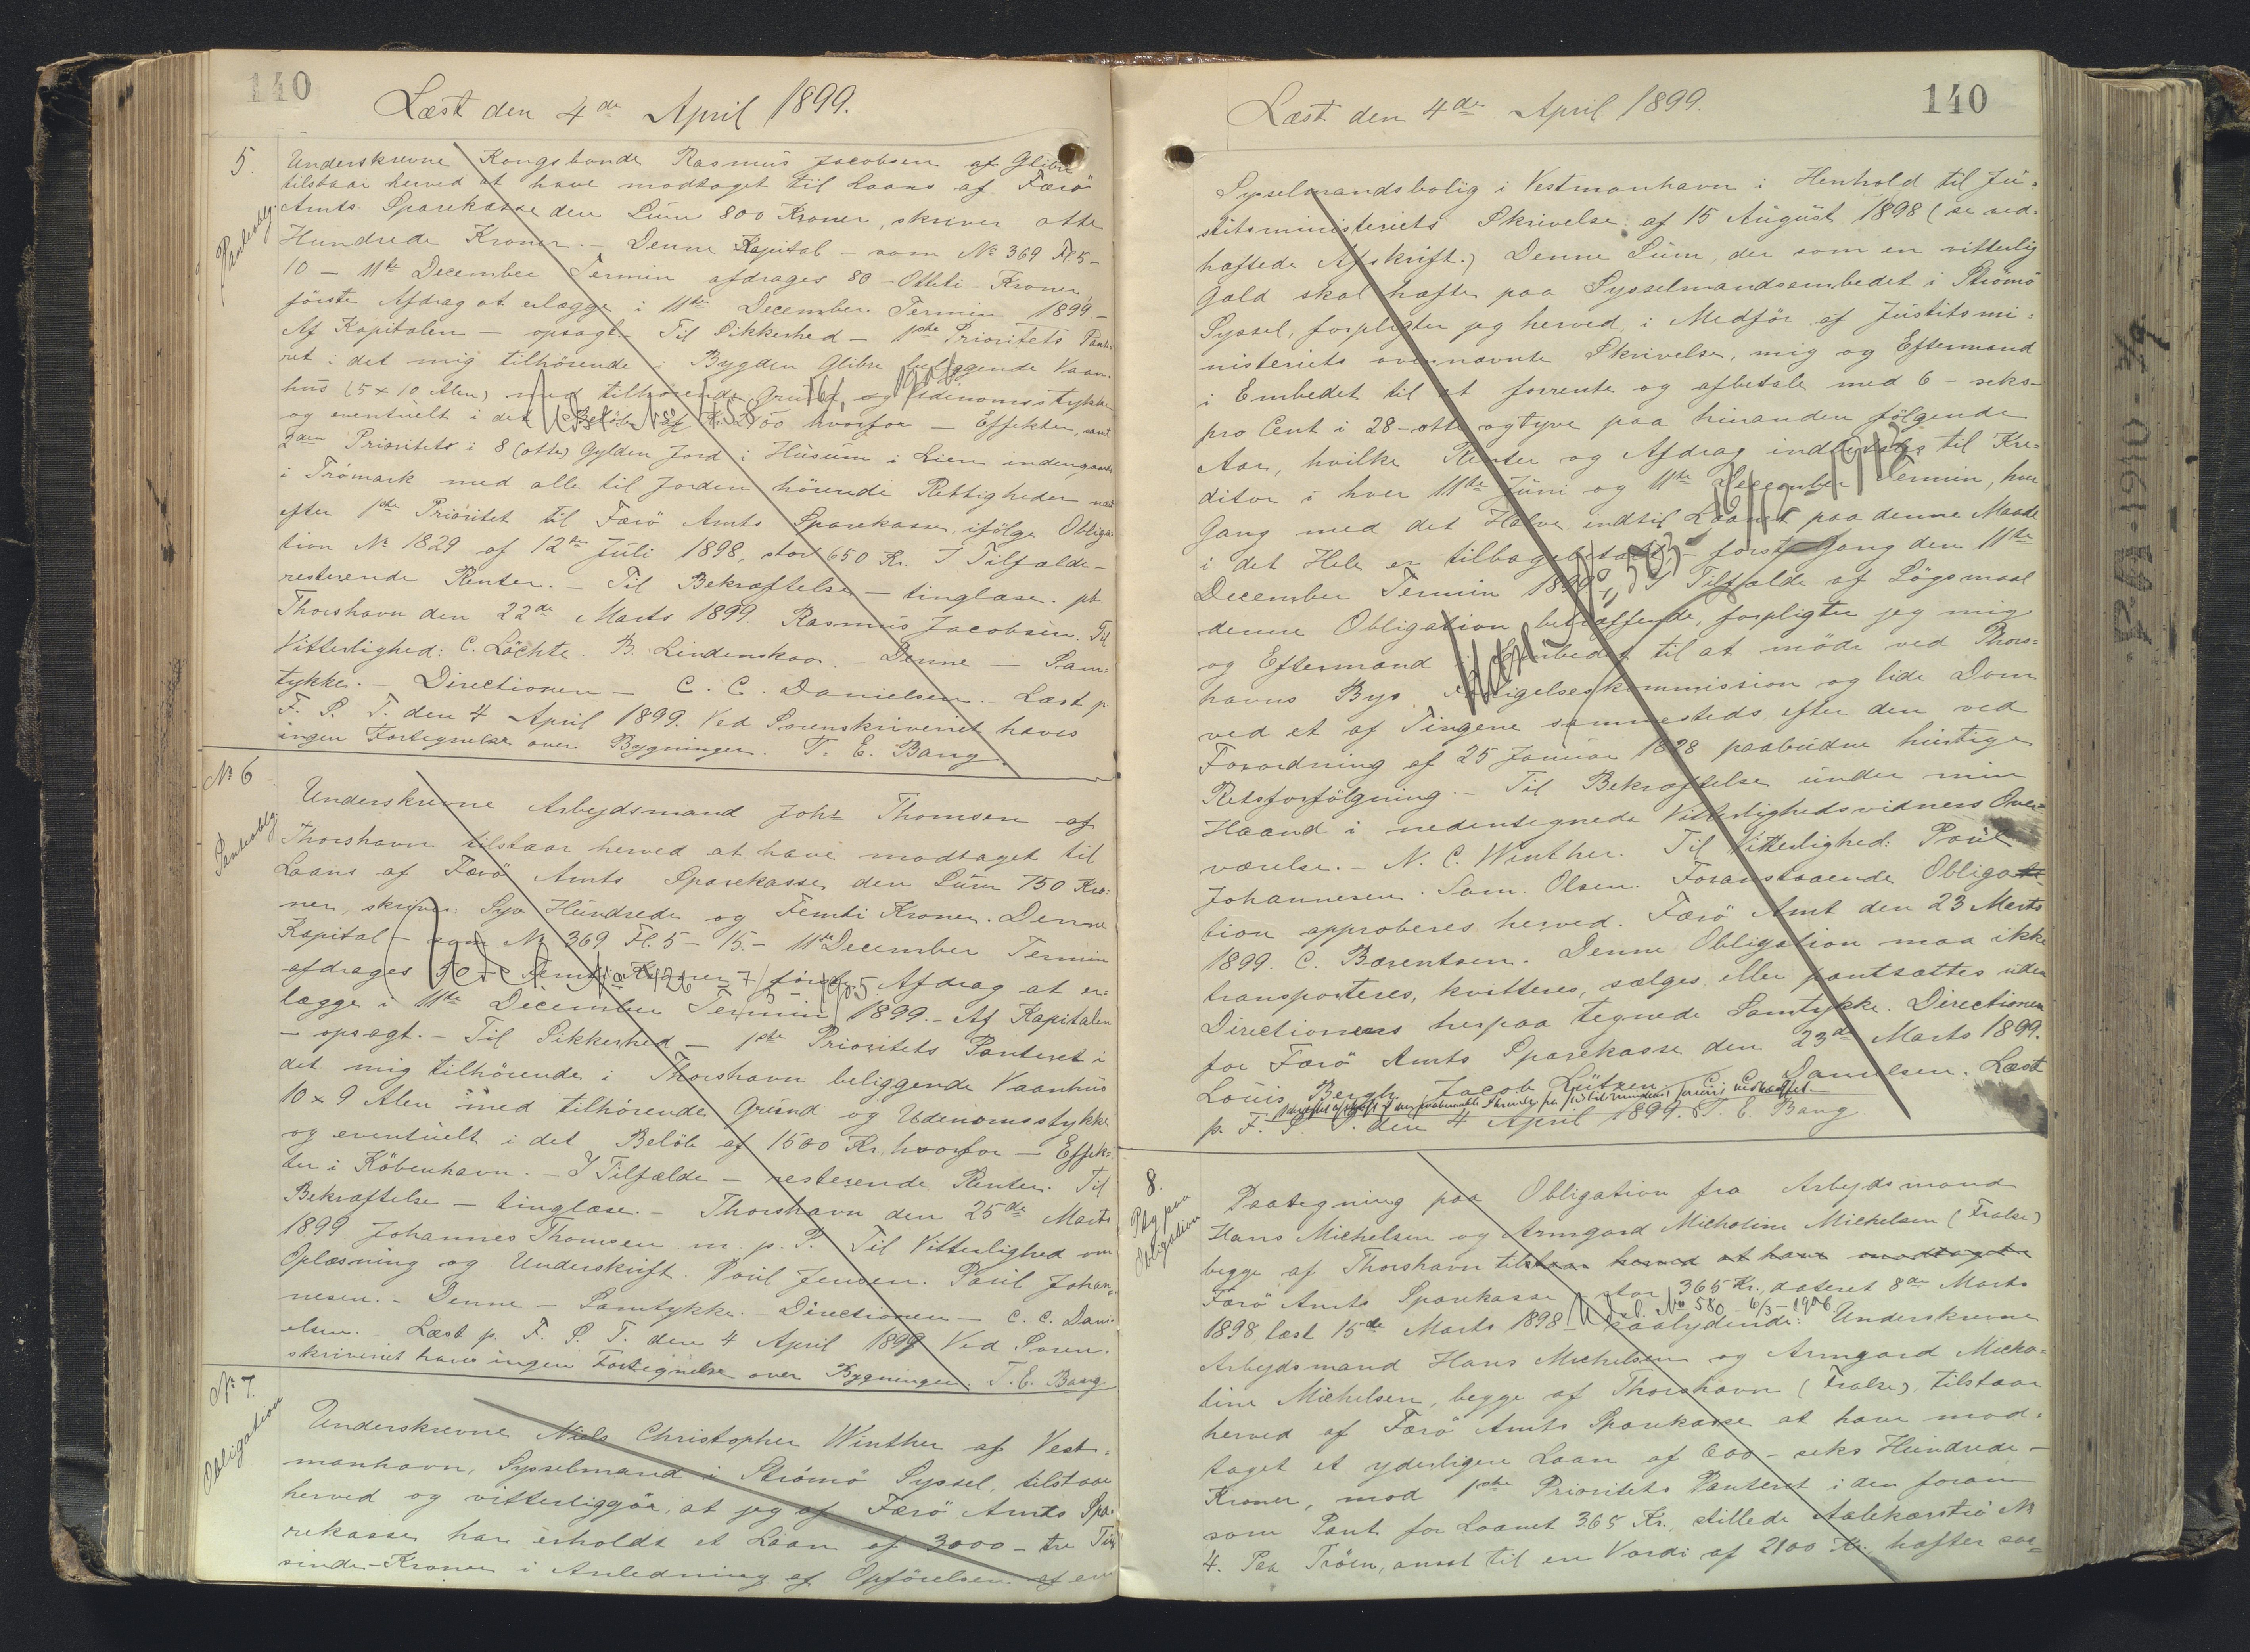 140
Læst den 4de April 1899.
5.
Panteoblg.
Underskrevne Kongsbonde Rasmus Jacobsen af Glibre
tilstaar herved at have modtaget til Laans af Færö
Amts Sparekasse den Sum 800 Kroner, skriver otte
Hundrede Kroner. – Denne Kapital – som No 369 Fl 5 –
10 – 11te December Termin afdrages 80 – Otteti – Kroner
förste Afdrag at erlægge i 11te December Termin 1899. –
Af Kapitalen – opsagt. Til Sikkerhed – 1ste Prioritets Pante-
ret i det mig tilhörende i Bygden Glibre beliggende Vaan-
hus (5 x 10 Alen) med tilhörende Grund og Udenomsstykke
og eventuelt i det Belöb af Kr. hvorfor – Effekter, samt
2den Prioritets i 8 (otte) Gylden Jord i Husum i Lien indengaards
i Trömark med alle til Jorden hörende Rettigheder næst
efter 1ste Prioritet til Færö Amts Sparekasse ifölge Obliga-
tion No 1829 af 12te Juli 1898, stor 650 Kr. I Tilfælde –
resterende Renter. – Til Bekræftelse – tinglæse. pt.
Thorshavn den 22de Marts 1899. Rasmus Jacobsen. Til
Vitterlighed: C. Löchte. B. Lindenskov. Denne – Sam-
tykke. – Directionen – C. C. Danielsen. – Læst p.
F. S. T. den 4 April 1899. Ved Sorenskriveriet haves
ingen Fortegnelse over Bygninger. T. E. Bang.
No 6
Panteoblg.
Underskrevne Arbejdsmand Johs Thomsen af
Thorshavn tilstaar herved at have modtaget til
Laans af Færö Amts Sparekasse den Sum 750 Kro-
ner, skriver: Syv Hundrede og Femti Kroner. Denne
Kapital – som No 369 Fl. 5 – 15. – 11te December Termin
afdrages 50 – Femti – Kroner, förste Afdrag at er-
Udsl. No 426 7/3 – 1905
lægge i 11te December Termin 1899. – Af Kapitalen
– opsagt. – Til Sikkerhed – 1ste Prioritets Panteret i
det mig tilhörende i Thorshavn beliggende Vaanhus
10 x 9 Alen med tilhörende Grund og Udenomsstykke
og eventuelt i det Belöb af 1500 Kr. hvorfor – Effek-
ter i Köbenhavn. – I Tilfælde – resterende Renter. Til
Bekræftelse – tinglæse. – Thorshavn den 25de Marts
1899. Johannes Thomsen m. p. P. Til Vitterlighed om
Oplæsning og Underskrift. Poul Jensen. Poul Johan-
nesen. – Denne – Samtykke. – Directionen – C. C. Dani-
elsen. – Læst p. F. S. T. den 4 April 1899. Ved Soren-
skriveriet haves ingen Fortegnelse over Bygninger. T. E. Bang
No 7.
Obligation
Underskrevne Niels Christopher Winther af Vest-
manhavn, Sysselmand i Strömö Syssel, tilstaar
herved og vitterliggör, at jeg af Færö Amts Spa-
rekasse har erholdt et Laan af 3000 – tre Tu-
sinde – Kroner i Anledning af Opförelsen af en
140
Læst den 4de April 1899.
Sysselmandsbolig i Vestmanhavn i Henhold til Ju-
stitsministeriets Skrivelse af 15 August 1898 (se ved-
hæftede Afskrift.) Denne Sum, der som en vitterlig
Gæld skal hæfte paa Sysselmandsembedet i Strömö
Syssel, forpligter jeg herved i Medför af Justitsmi-
nisteriets ovennævnte Skrivelse, mig og Eftermænd
i Embedet til at forrente og afbetale med 6 – seks –
pro Cent i 28 – otte og tyve paa hinanden fölgende
Aar, hvilke Renter og Afdrag indbetales til Kre-
ditor i hver 11te Juni og 11te December Termin, hver
Gang med det Halve indtil Laanet paa denne Maade
i det Hele er tilbagebetalt – förste Gang den 11te
December Termin 1899. I Tilfælde af Sögsmaal
denne Obligation betræffende, forpligter jeg mig
og Eftermænd i Embedet til at möde ved Thors-
havns Bys Forligelseskommission og lide Dom
ved et af Tingene sammesteds efter den ved
Forordning af 25 Januar 1828 paabudne hurtige
Retsforfölgning. – Til Bekræftelse under min
Haand i nedentegnede Vitterlighedsvidners Over-
værelse. – N. C. Winther. Til Vitterlighed: Poul
Johannesen. Sam. Olsen. Foranstaaende Obliga-
tion approberes herved. Færö Amt den 23 Marts
1899. C. Bærentsen. Denne Obligation maa ikke
transporteres, kvitteres, sælges eller pantsættes uden
Directionens herpaa tegnede Samtykke. Directionen
for Færö Amts Sparekasse den 23de Marts 1899.
Louis Bergh. Jacob Lützen. C. C. Danielsen. Læst
p. F. S. T. den 4 April 1899. T. E. Bang.
8.
Ptg paa
Obligation
Paategning paa Obligation fra Arbejdsmand
Hans Michelsen og Armgard Micholine Michelsen (Fralse)
begge af Thorshavn tilstaar herved at have modtaget
Færö Amts Sparekasse stor 365 Kr., dateret 8de Marts
Udsl. No 580 – 6/3 – 1906.
1898, læst 15de Marts 1898 – saalydende: Underskrevne
Arbejdsmand Hans Michelsen og Armgard Micho-
line Michelsen, begge af Thorshavn (Fralse), tilstaar
herved af Færö Amts Sparekasse at have mod-
taget et yderligere Laan af 600 – seks Hundrede –
Kroner, mod 1ste Prioritets Panteret i den foran
som Pant for Laanet 365 Kr., stillede No
4. Paa Tröen, ansat til en Værdi af 2100 Kr., hæfter saa-